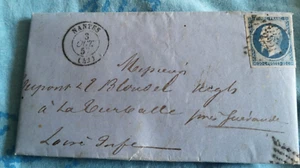 NANTES
3
5
(42)
Messieurs
Dupont & E Blondel Negts
à La Turballe près Guérande
Loire Infre